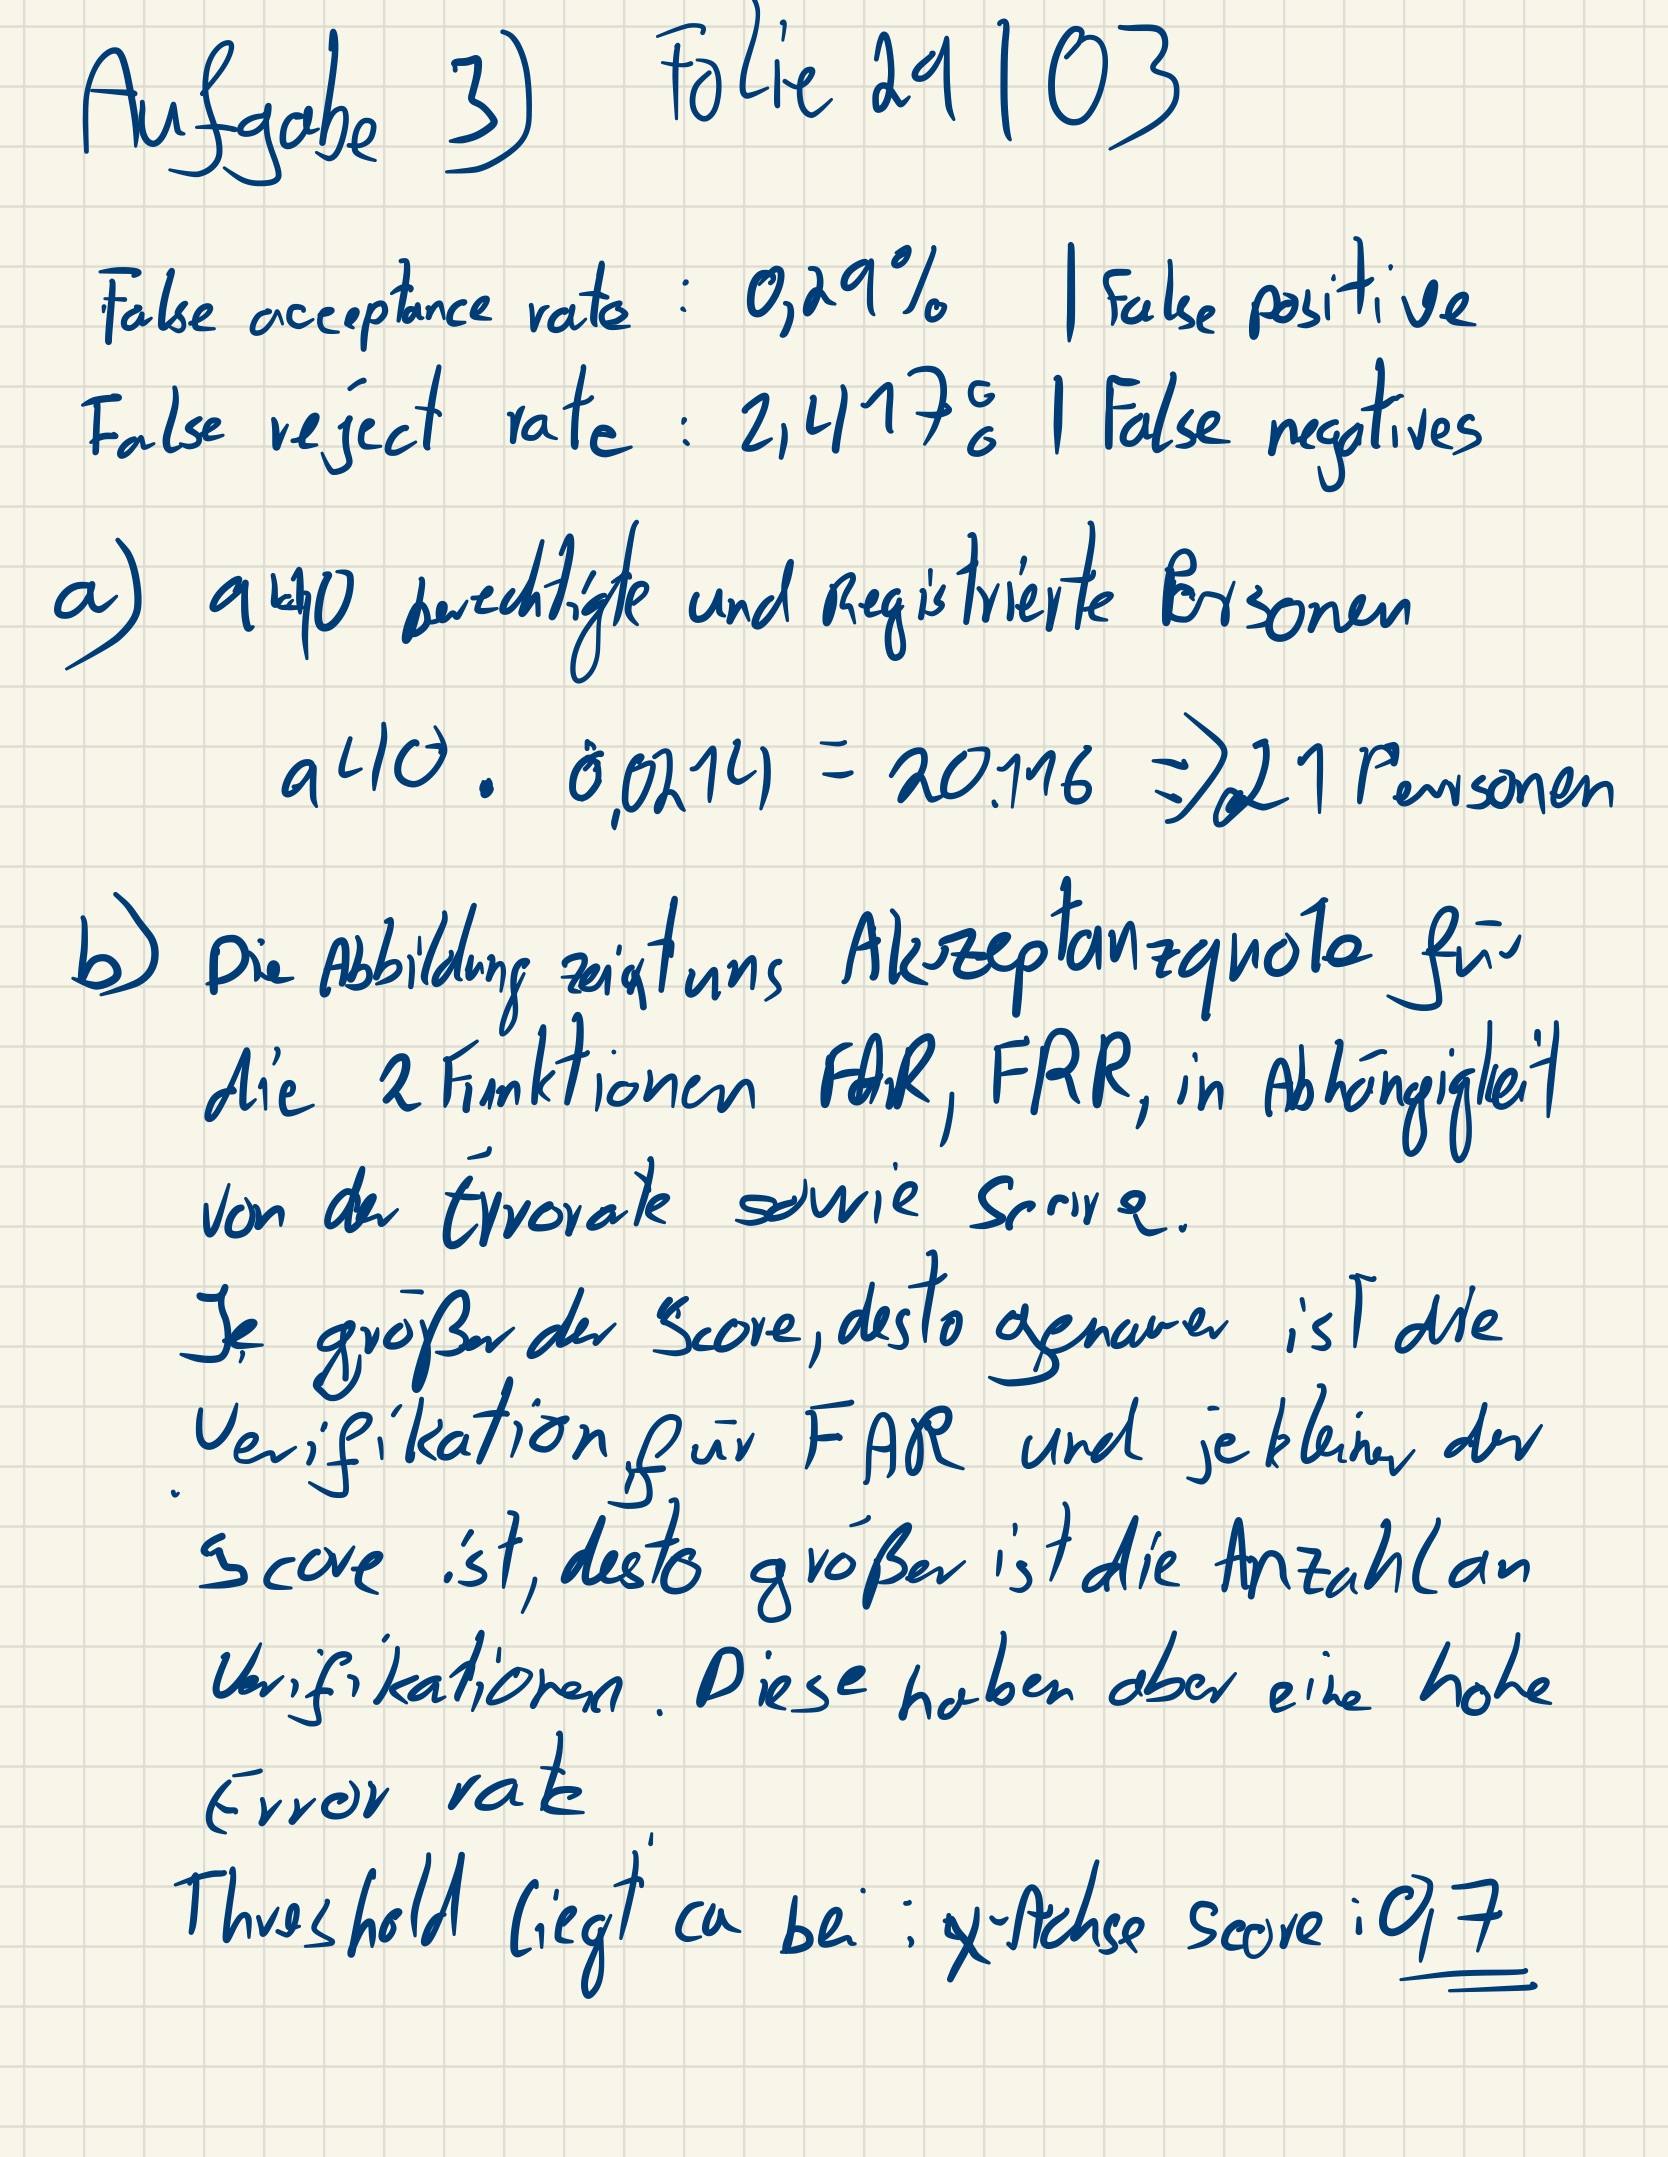 Aufgabe 3) Folie 29 | 03
False acceptance rate : 0,29% | False positive
False reject rate : 2,14% | False negatives
a) 940 berechtigte und Registrierte Personen
940 . 0,0214 = 20.116 => 21 Personen
b) Die Abbildung zeigt uns Akzeptanzquote für
die 2 Funktionen FAR, FRR, in Abhängigkeit
von der Errorate sowie
Je größer der Score, desto genauer ist die
Verifikation für FAR und je kleiner der
Score ist, desto größer ist die Anzahl an
Verifikationen. Diese haben aber eine hohe
Error rate
Threshold liegt ca bei : x-Achse Score : 0,7